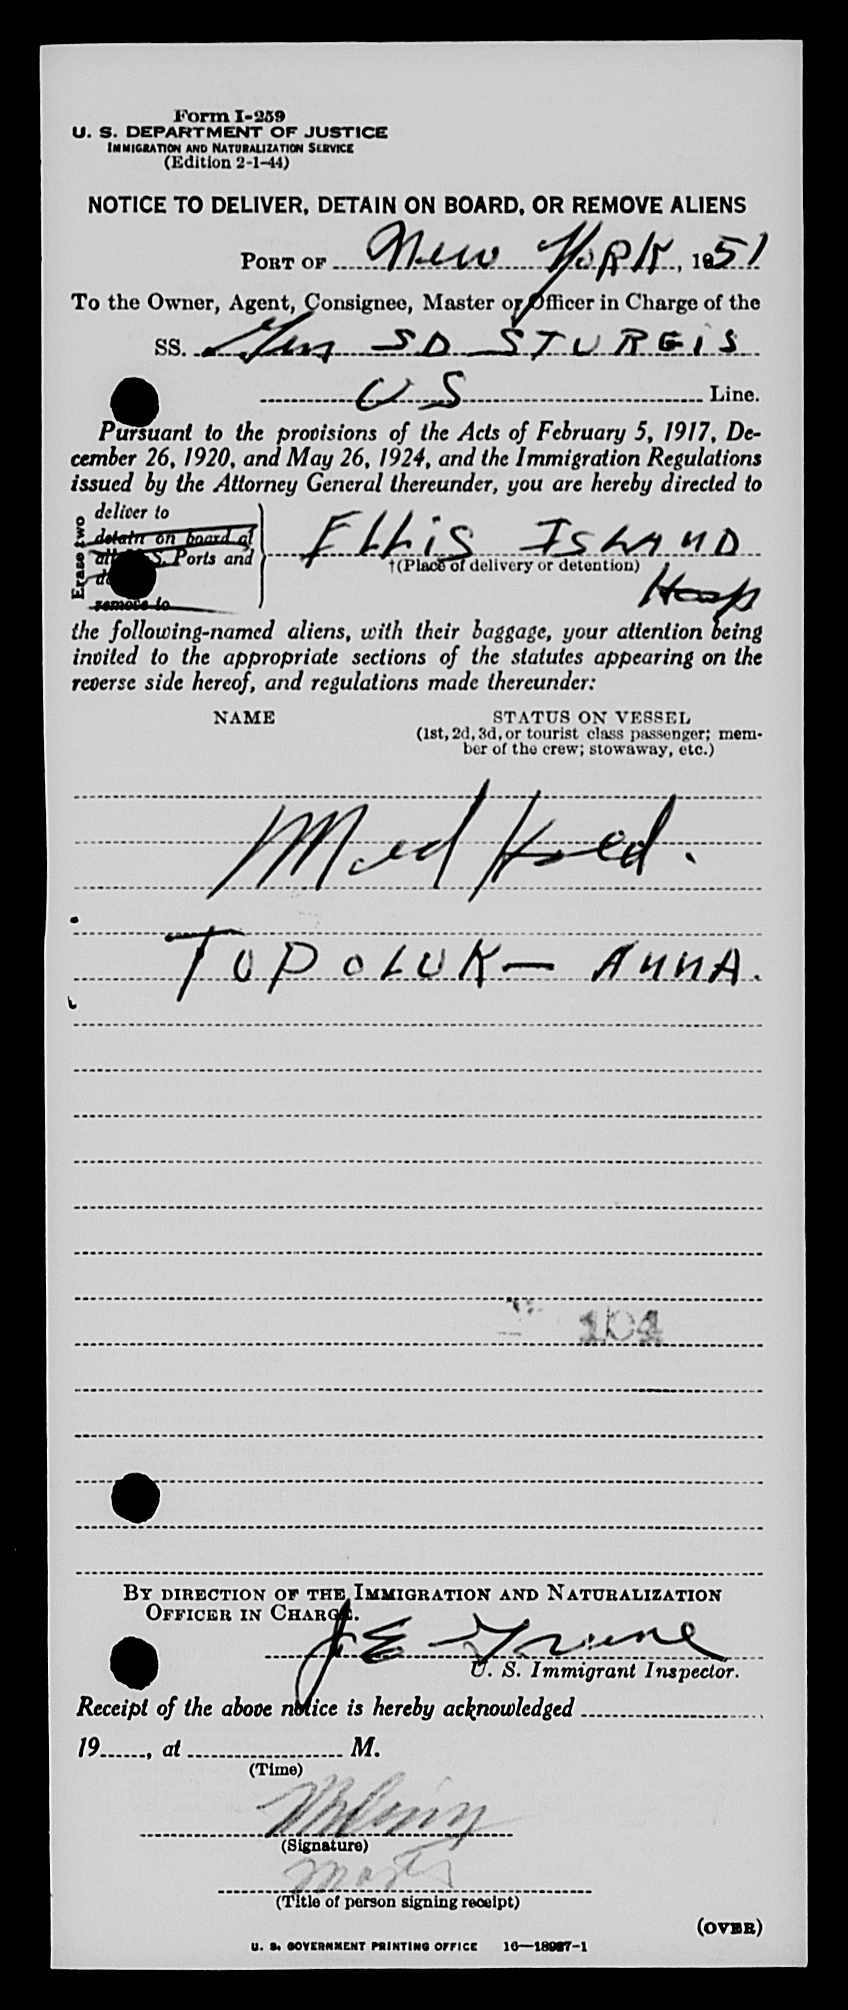 Form I-259
U. S. DEPARTMENT OF JUSTICE
IMMIGRATION AND NATURALIZATION SERVICE
(Edition 2-1-44)
NOTICE TO DELIVER, DETAIN ON BOARD, OR REMOVE ALIENS
PORT OF New York, 1951
To the Owner, Agent, Consignee, Master or Officer in Charge of the
SS. Gen SD STURGIS
US Line.
Pursuant to the provisions of the Acts of February 5, 1917, De-
cember 26, 1920, and May 26, 1924, and the Immigration Regulations
issued by the Attorney General thereunder, you are hereby directed to
Erase two
deliver to
detain on board at
all U.S. Ports and
remove to
ELLIS ISLAND
†(Place of delivery or detention)
Hosp
the following-named aliens, with their baggage, your attention being
invited to the appropriate sections of the statutes appearing on the
reverse side hereof, and regulations made thereunder:
NAME STATUS ON VESSEL
(1st, 2d, 3d, or tourist class passenger; mem-
ber of the crew; stowaway, etc.)
Med Hold.
TOPOLUK — ANNA.
104
BY DIRECTION OF THE IMMIGRATION AND NATURALIZATION
OFFICER IN CHARGE.
J E
U. S. Immigrant Inspector.
Receipt of the above notice is hereby acknowledged
19, at M.
(Time)
(Signature)
(Title of person signing receipt)
(OVER)
U. S. GOVERNMENT PRINTING OFFICE 16—18987-1